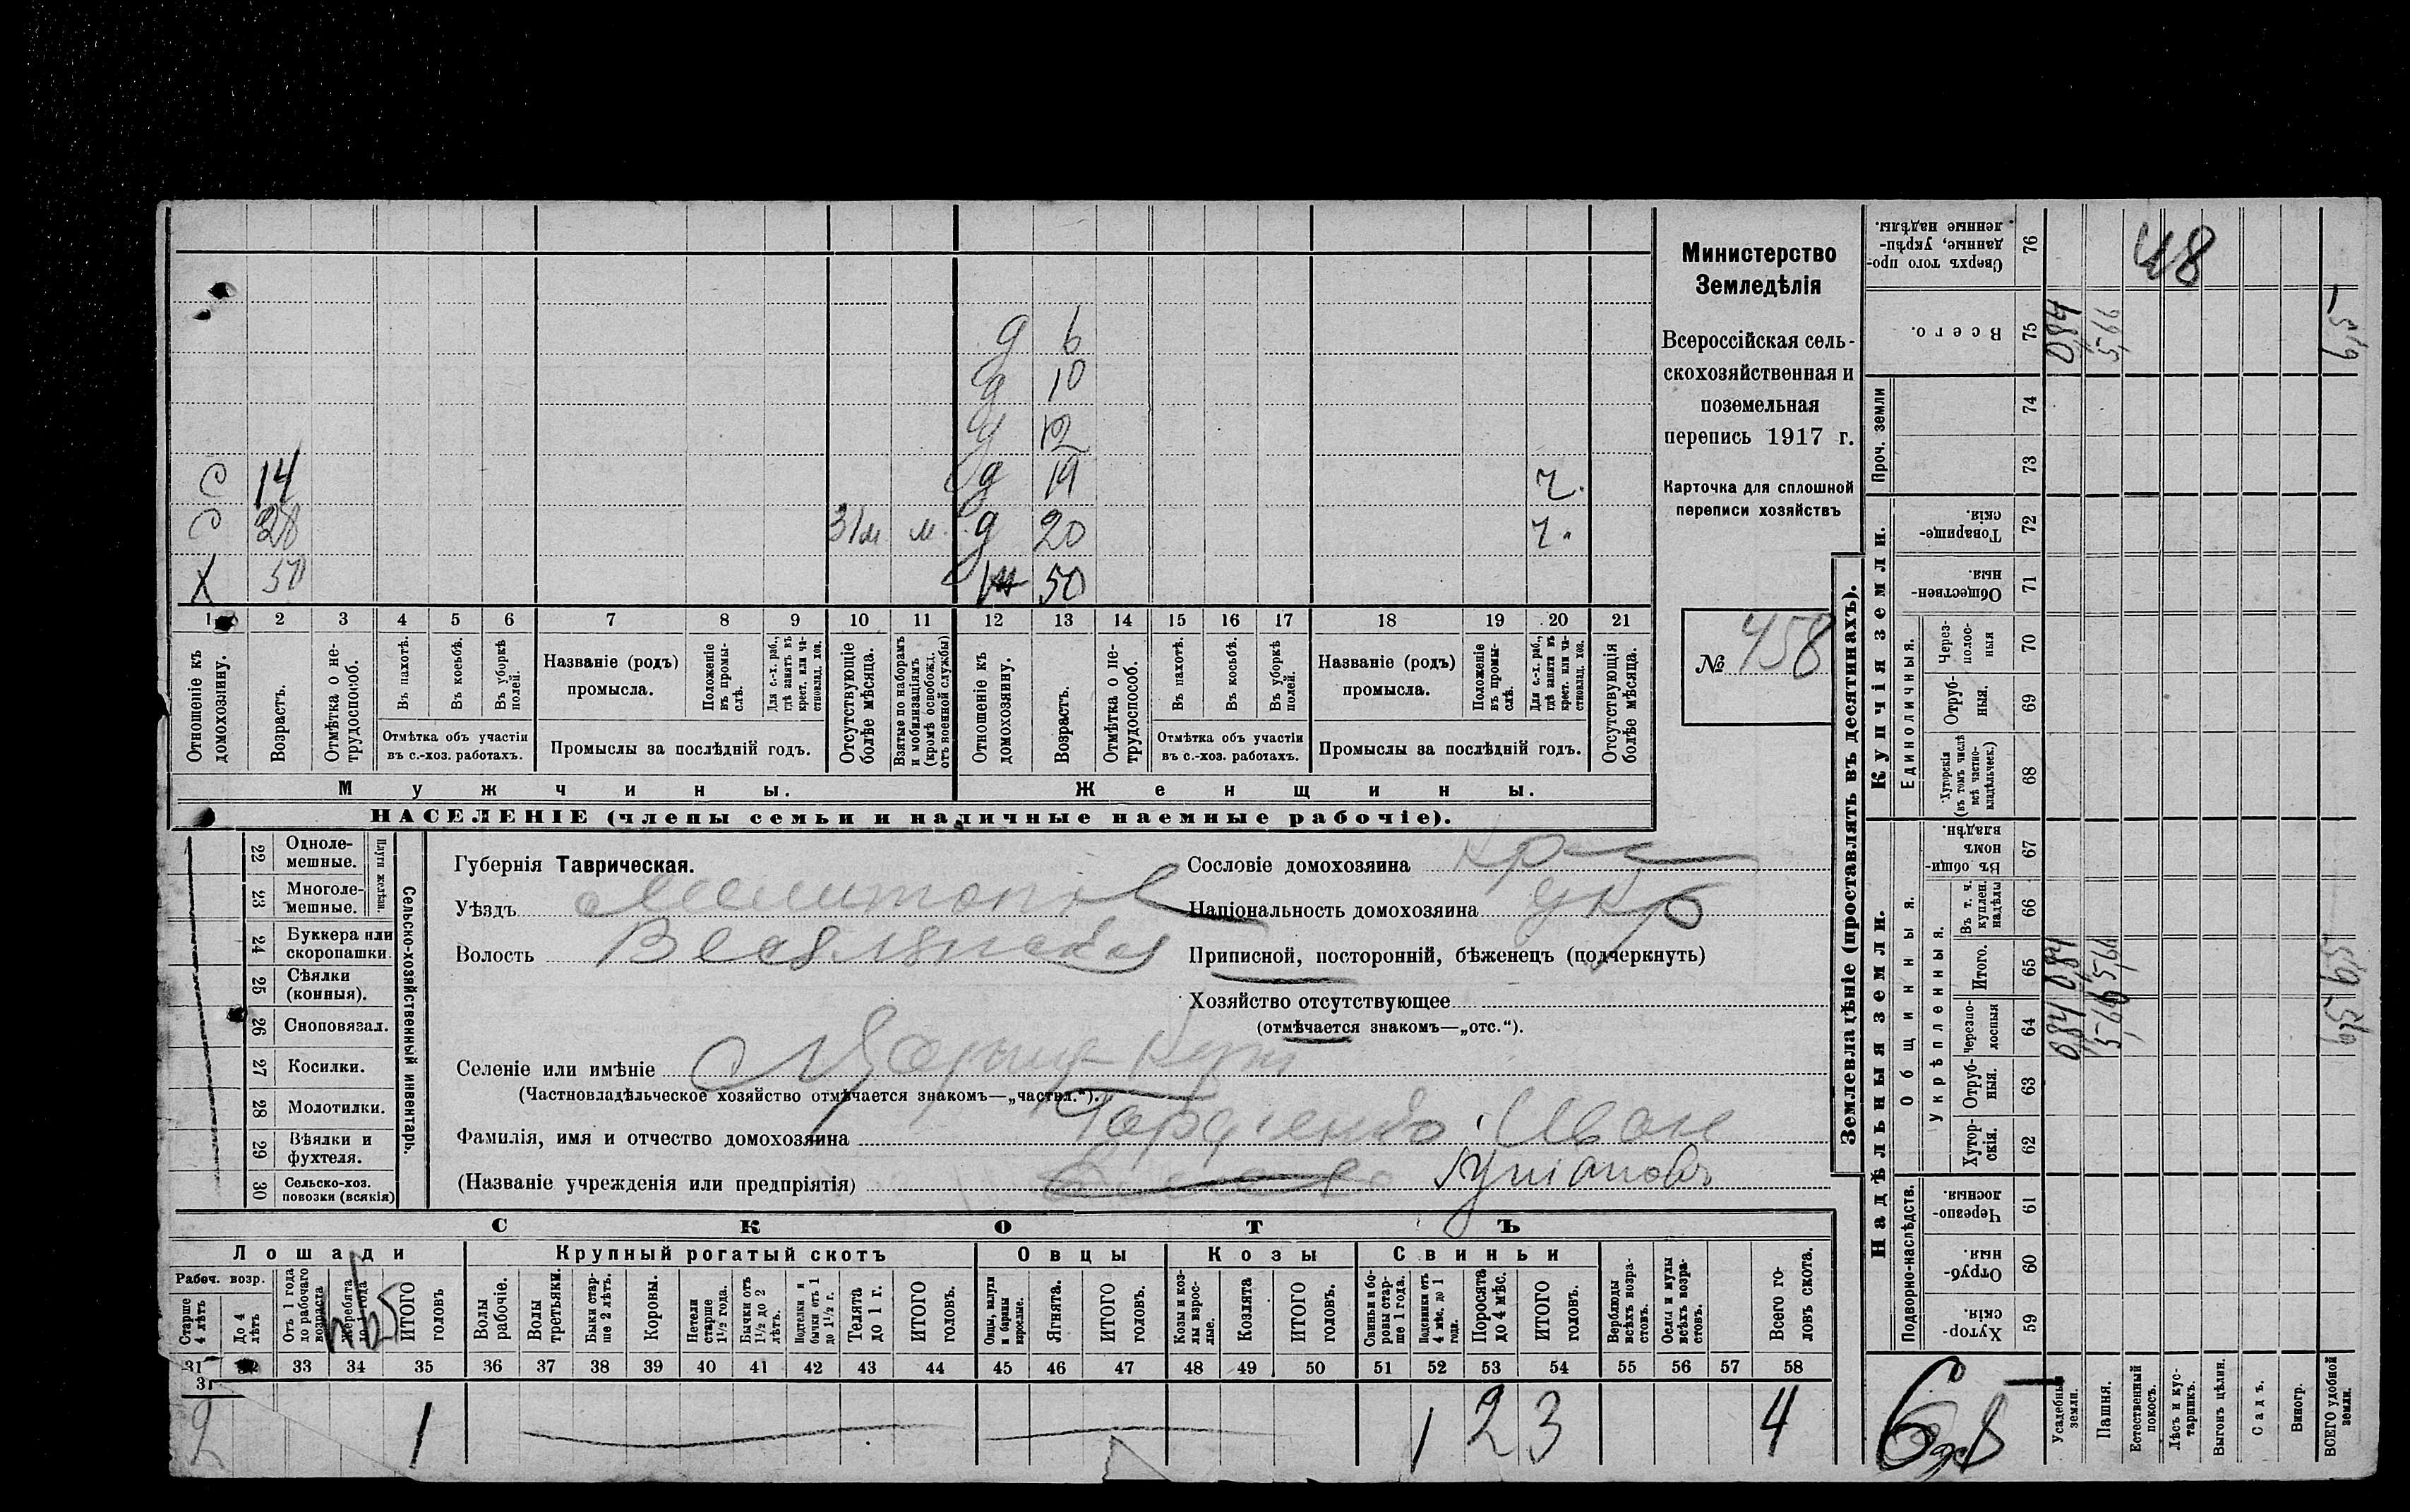 д 6
д 10
д 12
с 14 д 19 ч.
с 28 м. д 20 ч.
X 50
1 2 3 4 5 6 7 8 9 10 11 12 13 14 15 16 17 18 19 20 21
Отношеніе къ домохозяину.
Возрастъ.
Отмѣтка о не-трудоспособ.
Въ пахотѣ.
Въ косьбѣ.
Въ уборкѣ полей.
Отмѣтка объ участіи
въ с.-хоз. работахъ.
Названіе (родъ)
промысла.
Положеніе въ промы-слѣ.
Для с.-х. раб., гдѣ занятъ въ крест. или ча-стновлад. хоз.
Промыслы за послѣдній годъ.
Отсутствующіе болѣе мѣсяца.
Взятые по наборамъ и мобилизаціямъ (кромѣ освобожд. отъ военной службы)
Отношеніе къ домохозяину.
Возрастъ.
Отмѣтка о не-трудоспособ.
Въ пахотѣ.
Въ косьбѣ.
Въ уборкѣ полей.
Отмѣтка объ участіи
въ с.-хоз. работахъ.
Названіе (родъ)
промысла.
Положеніе въ промы-слѣ.
Для с.-х. раб., гдѣ заняты въ крест. или ча-стновлад. хоз.
Промыслы за послѣдній годъ.
Отсутствующія болѣе мѣсяца.
Мужчины. Женщины.
НАСЕЛЕНІЕ (члены семьи и наличные наемные рабочіе).
Министерство
Земледѣлія
Всероссійская сель-
скохозяйственная и
поземельная
перепись 1917 г.
Карточка для сплошной
переписи хозяйствъ
№ 458
22 Одноле-мешные.
23 Многоле-мешные.
Плуги желѣзн.
24 Буккера или скоропашки.
25 Сѣялки (конныя).
26 Сноповязал.
27 Косилки.
28 Молотилки.
29 Вѣялки и фухтеля.
30 Сельско-хоз. повозки (всякія)
Сельско-хозяйственный инвентарь.
Губернія Таврическая.
Уѣздъ Мелитопол
Волость Веселянская
Селеніе или имѣніе
(Частновладѣльческое хозяйство отмѣчается знакомъ—„частвл.“).
Фамилія, имя и отчество домохозяина Гордіенко Иван
(Названіе учрежденія или предпріятія)
Сословіе домохозяина кр
Національность домохозяина укр
Приписной, посторонній, бѣженецъ (подчеркнуть)
Хозяйство отсутствующее
(отмѣчается знакомъ—„отс.“).
СКОТЪ
Лошади
Рабоч. возр.
Старше 4 лѣтъ
До 4 лѣтъ
Отъ 1 года до рабочаго возраста
Жеребята до 1 года
ИТОГО головъ
Крупный рогатый скотъ
Волы рабочіе.
Волы третьяки.
Быки стар-ше 2 лѣтъ.
Коровы.
Нетели старше 1½ года.
Бычки отъ 1½ до 2 лѣтъ.
Подтелки и бычки отъ 1 до 1½ г.
Телята до 1 г.
ИТОГО головъ.
Овцы
Овцы, валухи и бараны взрослые.
Ягнята.
ИТОГО головъ.
Козы
Козы и коз-лы взрос-лые.
Козлята
ИТОГО головъ.
Свиньи
Свиньи и бо-ровы стар-ше 1 года.
Подсвинки отъ 4 мѣс. до 1 года.
Поросята до 4 мѣс.
ИТОГО головъ.
Верблюды всѣхъ возра-стовъ.
Ослы и мулы всѣхъ возра-стовъ.
Всего го-ловъ скота.
31 33 34 35 36 37 38 39 40 41 42 43 44 45 46 47 48 49 50 51 52 53 54 55 56 57 58
31
2 1 1 2 3 4
Землевладѣніе (проставлять въ десятинахъ).
Надѣльныя земли. Купчія земли.
Подворно-наслѣдств.
Общинныя.
Укрѣпленныя.
Единоличныя.
Проч. земли
59 Хутор-скія.
60 Отруб-ныя.
61 Черезпо-лосныя.
62 Хутор-скія.
63 Отруб-ныя.
64 Черезпо-лосныя
65 Итого.
66 Въ т. ч. куплен. надѣлы
67 Въ общин-номъ владѣн.
68 Хуторскія (въ томъ числѣ всѣ частно-владѣльческ.)
69 Отруб-ныя.
70 Через-полос-ныя
71 Обществен-ныя.
72 Товарище-скія.
73
74
75 Всего.
76 Сверхъ того про-данные, укрѣп-ленные надѣлы.
Усадебныя земли. 0,84 0,84 0,84
Пашня. 5,66 5,66 5,66
Естественный покосъ.
Лѣсъ и кус-тарникъ.
Выгонъ цѣлин.
Садъ.
Виногр.
ВСЕГО удобной земли. 6,5 6,5 6,5
48